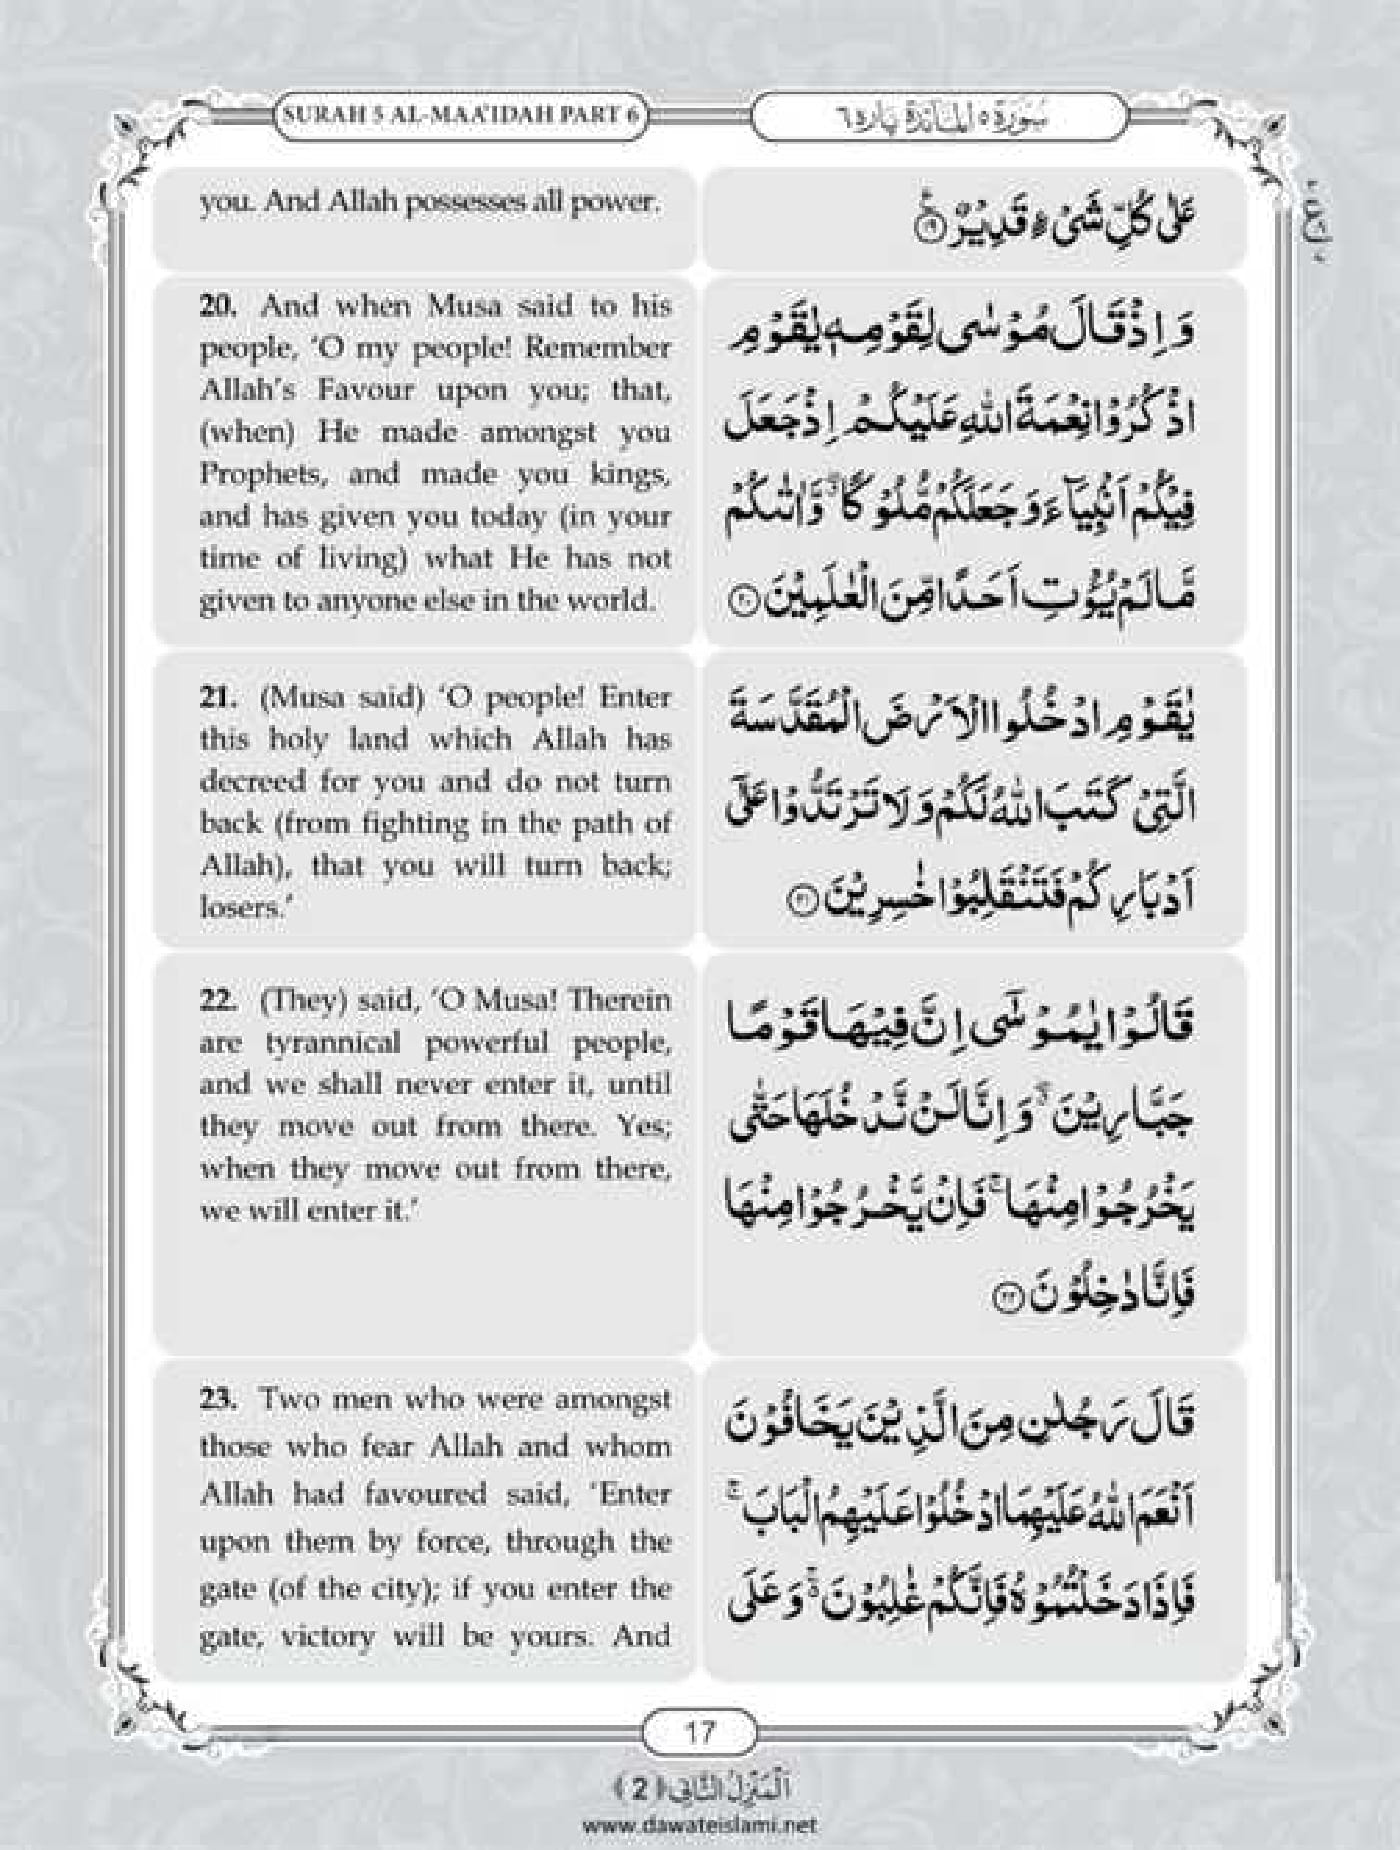 SURAH 5 AL-MAA'IDAH PART 6
سُوْرَة ٥ اَلْمَآئِدَة پاره ٦
you. And Allah possesses all power.
عَلٰى كُلِّ شَیْءٍ قَدِیْرٌ۠ ﴿۱۹﴾
20. And when Musa said to his
people, ‘O my people! Remember
Allah’s Favour upon you; that,
(when) He made amongst you
Prophets, and made you kings,
and has given you today (in your
time of living) what He has not
given to anyone else in the world.
وَ اِذْ قَالَ مُوْسٰى لِقَوْمِهٖ یٰقَوْمِ
اذْكُرُوْا نِعْمَةَ اللّٰهِ عَلَیْكُمْ اِذْ جَعَلَ
فِیْكُمْ اَنْۢبِیَآءَ وَ جَعَلَكُمْ مُّلُوْكًا ۖۗ وَّ اٰتٰىكُمْ
مَّا لَمْ یُؤْتِ اَحَدًا مِّنَ الْعٰلَمِیْنَ ﴿۲۰﴾
21. (Musa said) ‘O people! Enter
this holy land which Allah has
decreed for you and do not turn
back (from fighting in the path of
Allah), that you will turn back;
losers.’
یٰقَوْمِ ادْخُلُوا الْاَرْضَ الْمُقَدَّسَةَ
الَّتِیْ كَتَبَ اللّٰهُ لَكُمْ وَ لَا تَرْتَدُّوْا عَلٰۤى
اَدْبَارِكُمْ فَتَنْقَلِبُوْا خٰسِرِیْنَ ﴿۲۱﴾
22. (They) said, ‘O Musa! Therein
are tyrannical powerful people,
and we shall never enter it, until
they move out from there. Yes;
when they move out from there,
we will enter it.’
قَالُوْا یٰمُوْسٰۤى اِنَّ فِیْهَا قَوْمًا
جَبَّارِیْنَ ۖۗ وَ اِنَّا لَنْ نَّدْخُلَهَا حَتّٰى
یَخْرُجُوْا مِنْهَا ۚ فَاِنْ یَّخْرُجُوْا مِنْهَا
فَاِنَّا دٰخِلُوْنَ ﴿۲۲﴾
23. Two men who were amongst
those who fear Allah and whom
Allah had favoured said, ‘Enter
upon them by force, through the
gate (of the city); if you enter the
gate, victory will be yours. And
قَالَ رَجُلٰنِ مِنَ الَّذِیْنَ یَخَافُوْنَ
اَنْعَمَ اللّٰهُ عَلَیْهِمَا ادْخُلُوْا عَلَیْهِمُ الْبَابَ ۚ
فَاِذَا دَخَلْتُمُوْهُ فَاِنَّكُمْ غٰلِبُوْنَ ۚ۬ وَ عَلَى
17
اَلْمَنْزِلُ الثَّانِی ﴿2﴾
www.dawateislami.net